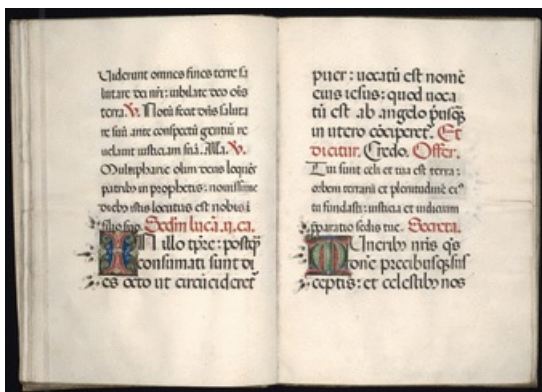 Uiderunt omnes fines terre sa
lutare dei nr̄i: iubilate deo oīs
terra. V. Notū fecit dn̄s saluta
re suū ante conspectū gentiū re
uelauit iusticiam suā. Alla. V.
Multipharie olim deus loquēs
patribꝰ in prophetis: nouissime
diebꝰ istis locutus est nobis ī
filio suo. Sedm lucā. ii. ca.
IN illo tp̄re: postqꝫ
consumati sunt di
es octo ut circūcideret᷑
puer: uocatū est nomē
eius iesus: quod uoca
tū est ab angelo pusqꝫ
in utero cōciperet᷑. Et
dicitur. Credo. Offer.
Tui sunt celi et tua est terra:
orbem terrarū et plenitudinē eiꝰ
tu fundasti: iusticia et iudicium
pparatio sedis tue. Secreta.
MUneribꝰ nr̄is qs
dn̄e precibusqꝫ sus
ceptis: et celestibꝰ nos